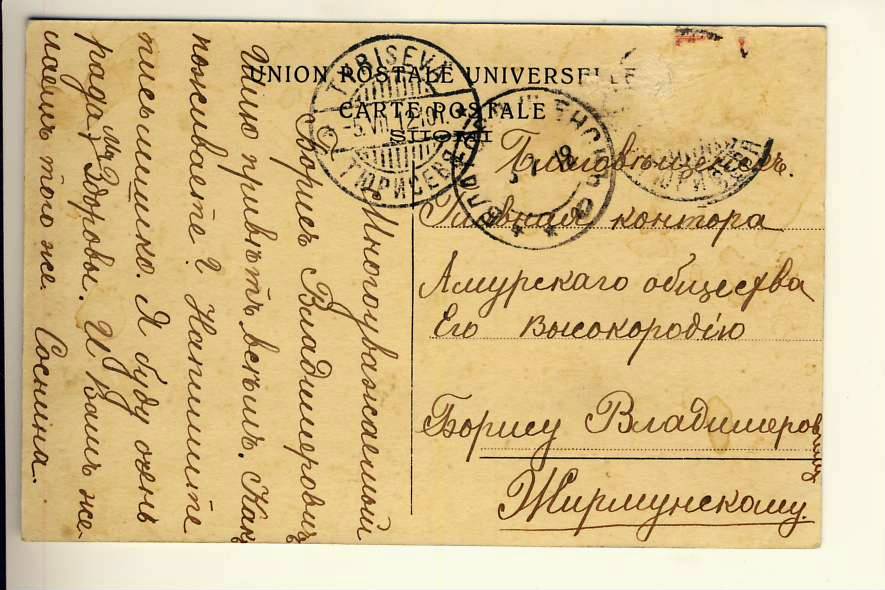 UNION POSTALE UNIVERSELLE
CARTE POSTALE
SUOMI
TYRISEVÄ
-5.VII.12.10
ТЮРИСЕВЯ
Благовѣщенскъ.
Главная контора
Амурскаго общества
Его Высокородію
Борису Владимеровичу
Жирмунскому
Многоуважаемый
Борисъ Владимеровичъ
Шлю привѣтъ всѣмъ. Какъ
поживаете? Напишите
письмишко. Я буду очень
рада. Мы здоровы. И Вамъ же-
лаемъ того же. Соснина.